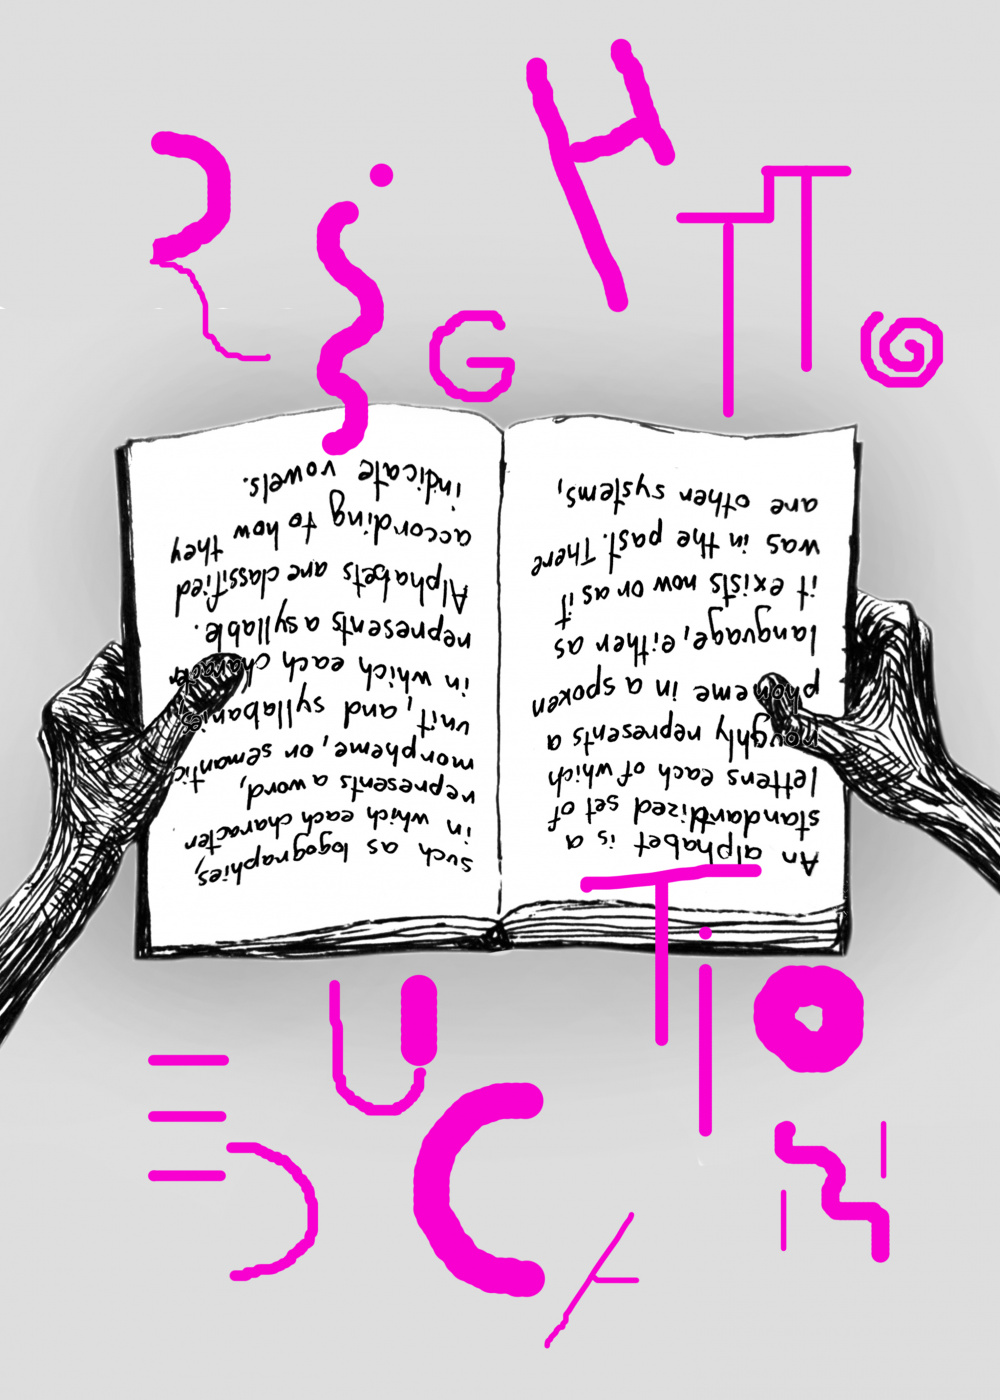 RiGHT TO
An alphabet is a
standardized set of
letters each of which
roughly represents a
phoneme in a spoken
language, either as
it exists now or as it
was in the past. There
are other systems,
such as logographies,
in which each character
represents a word,
morpheme, or semantic
unit, and syllabaries
in which each character
represents a syllable.
Alphabets are classified
according to how they
indicate vowels.
EDUCATiON